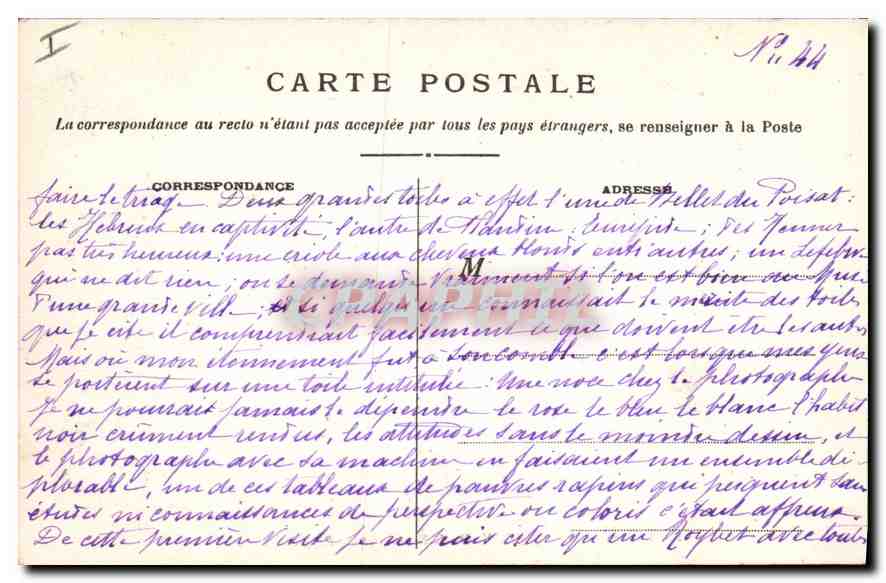 I
No 44
CARTE POSTALE
La correspondance au recto n'étant pas acceptée par tous les pays étrangers, se renseigner à la Poste
CORRESPONDANCE
ADRESSE
M
faire le triage. Deux grandes toiles à effet l'une de Bellet du Poisat :
les Hébreux en captivité, l'autre de : Euripide ; des Henner
pas très heureux : une créole aux cheveux blonds entr'autres ; un Lefebvre
qui ne dit rien ; on se demande vraiment si l'on est bien au Musée
d'une grande ville, et si quelqu'un connaissait le mérite des toiles
que je cite il comprendrait facilement ce que doivent être les autres
Mais où mon étonnement fut à son comble c'est lorsque mes yeux
se portèrent sur une toile intitulée : Une noce chez le photographe
Je ne pourrais jamais le dépeindre le rose le bleu le blanc l'habit
noir crûment rendus, les attitudes sans le moindre dessin, et
le photographe avec sa machine en faisaient un ensemble dé-
plorable, un de ces tableaux de pauvres rapins qui peignent sans
études ni connaissances de perspective ou coloris c'était affreux.
De cette première visite je ne puis citer qu'un Roybet avec toutes